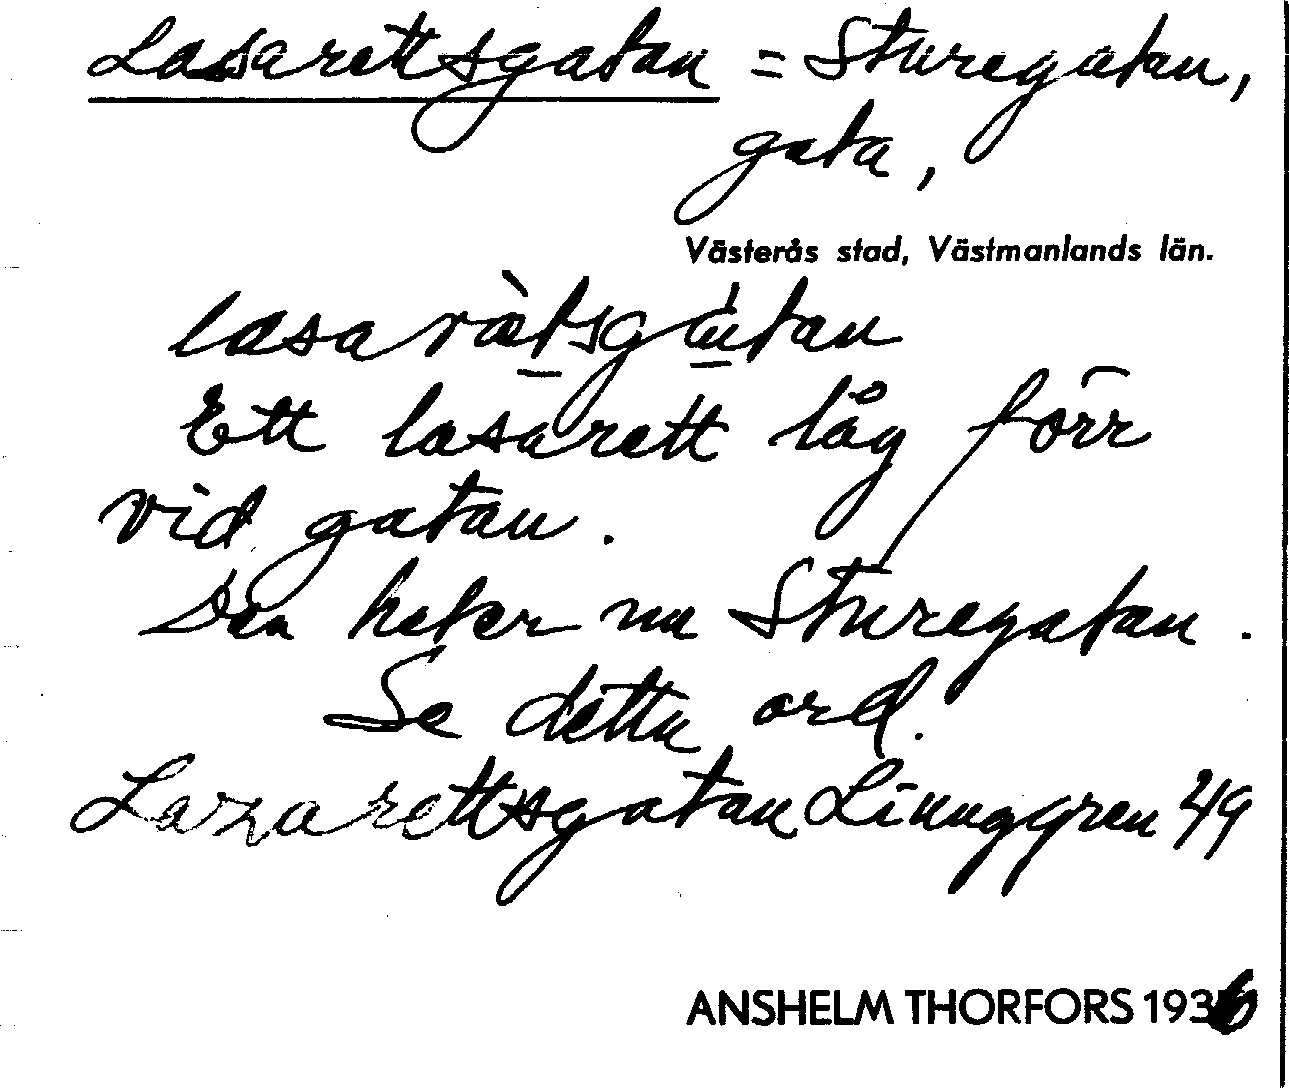 Lasarettsgatan = Sturegatan,
gata,
Västerås stad, Västmanlands län.
lasaræ̀tsgátan
Ett lasarett låg förr
vid gatan.
Den heter nu Sturegatan.
Se detta ord.
Lazarettsgatan Linnggren 49
ANSHELM THORFORS 1936